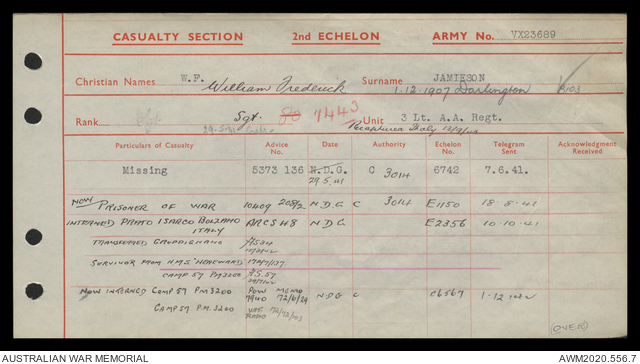 CASUALTY SECTION 2nd ECHELON ARMY No. VX23689
Christian Names W.F. William Frederick Surname JAMIESON
1.12.1907 Darlington
Rank Sgt. 7443 Unit 3 Lt. A.A. Regt.
Recaptured Italy
Particulars of Casualty Advice No. Date Authority Echelon No. Telegram Sent Acknowledgment Received
Missing 5373 136 N.D.G. C 3014 6742 7.6.41.
29.5.41
NOW PRISONER OF WAR 10409 208/2 NDG C 3014 E1150 18.8.41
INTERNED PRATO ISARCO BOLZANO ARCS 48 NDG E2356 10.10.41
ITALY
TRANSFERRED GRUPPIGNANO AS34
SURVIVOR FROM H.M.S. "HEREWARD"
CAMP 57 PM3200 AS.57
NOW INTERNED CAMP 57 PM3200 POW MEMO
7940 72/6/29 NDG C C6567 1.12
CAMP 57 P.M. 3200 VAT. RADIO
(OVER)
AUSTRALIAN WAR MEMORIAL AWM2020.556.7